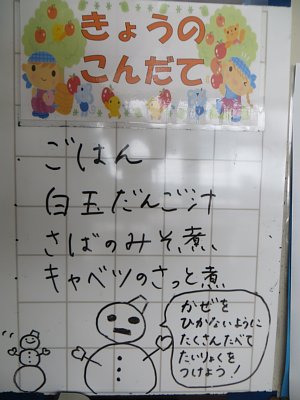 きょうの
こんだて
ごはん
白玉だんご汁
さばのみそ煮
キャベツのさっと煮
かぜを
ひかないように
たくさんたべて
たいりょくを
つけよう!